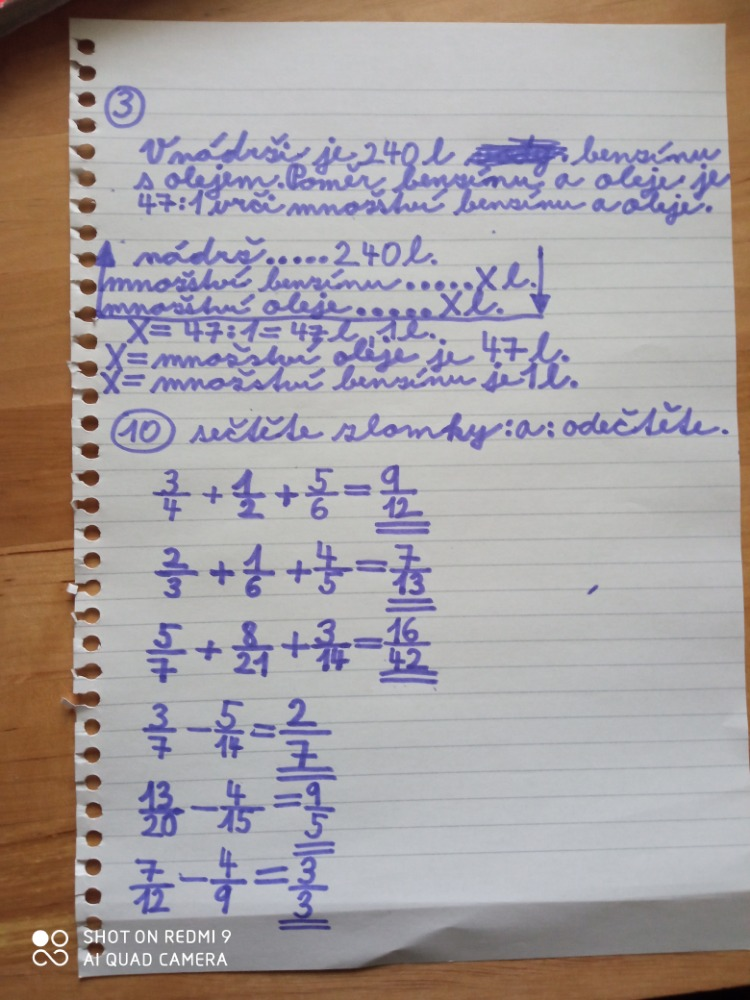 3
V nádrži je 240 l benzínu
s olejem. Poměr benzínu a oleje je
47:1 urči množství benzínu a oleje.
nádrž.....240 l.
množství benzínu.....X l.
množství oleje.....X l.
X= 47:1=47 l, 1 l.
X= množství oleje je 47 l.
X= množství benzínu je 1 l.
10 sečtěte zlomky:a: odečtěte.
3/4 + 1/2 + 5/6 = 9/12
2/3 + 1/6 + 4/5 = 7/13
5/7 + 8/21 + 3/14 = 16/42
3/7 - 5/14 = 2/7
13/20 - 4/15 = 9/5
7/12 - 4/9 = 3/3
SHOT ON REDMI 9
AI QUAD CAMERA